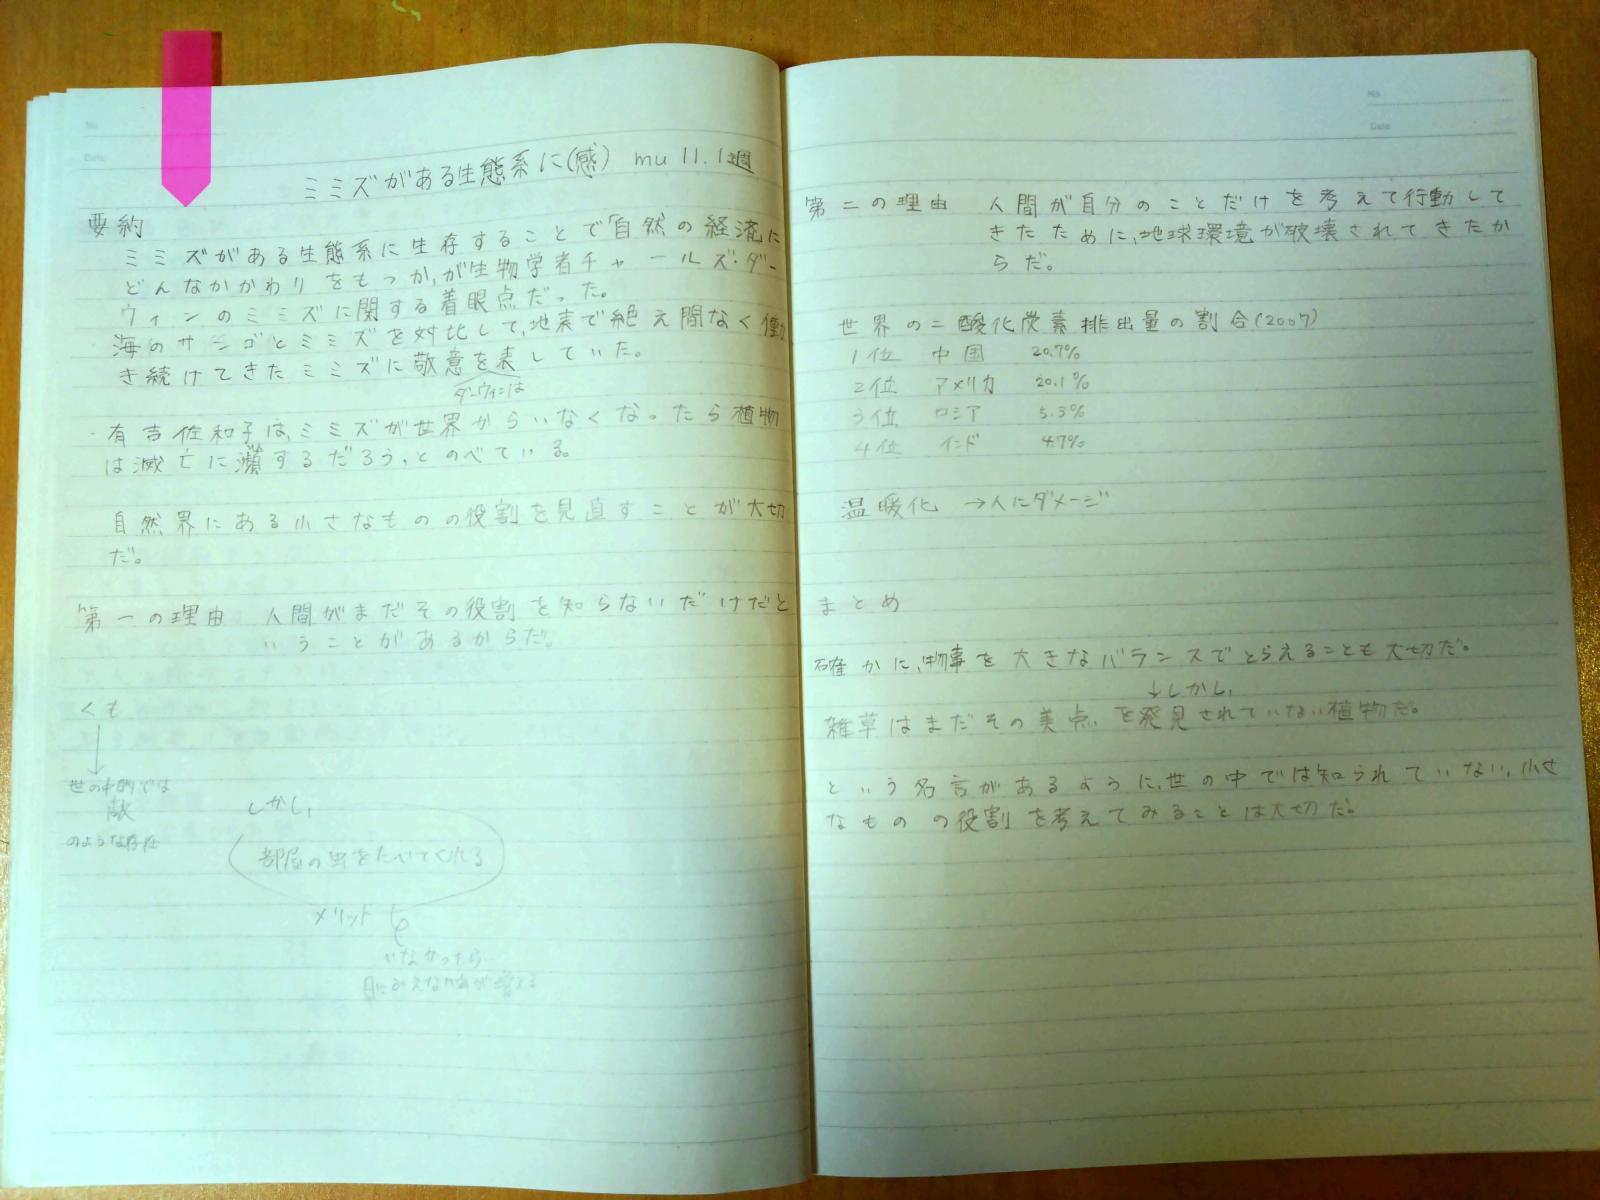 No.
Date
ミミズがある生態系に(感) mu 11.1週
要約
ミミズがある生態系に生存することで「自然の経済に
どんなかかわりをもつか、が生物学者チャールズ・ダー
ウィンのミミズに関する着眼点だった。
海のサンゴとミミズを対比して、地表で絶え間なく働
き続けてきたミミズに敬意を表していた。
ダーウィンは
有吉佐和子は、ミミズが世界からいなくなったら植物
は滅亡に瀕するだろう、とのべている。
自然界にある小さなものの役割を見直すことが大切
だ。
第一の理由 人間がまだその役割を知らないだけだと
いうことがあるからだ。
くも
↓
世の中的では
敵
のような存在
しかし、
部屋の虫をたべてくれる
メリット
いなかったら
目にみえない虫が増える
No.
Date
第二の理由 人間が自分のことだけを考えて行動して
きたために、地球環境が破壊されてきたか
らだ。
世界の二酸化炭素排出量の割合(2007)
1位 中国 20.7%
2位 アメリカ 20.1%
3位 ロシア 5.3%
4位 インド 4.7%
温暖化 →人にダメージ
まとめ
確かに、物事を大きなバランスでとらえることも大切だ。
↓しかし、
雑草はまだその美点を発見されていない植物だ。
という名言があるように、世の中では知られていない、小さ
なものの役割を考えてみることは大切だ。